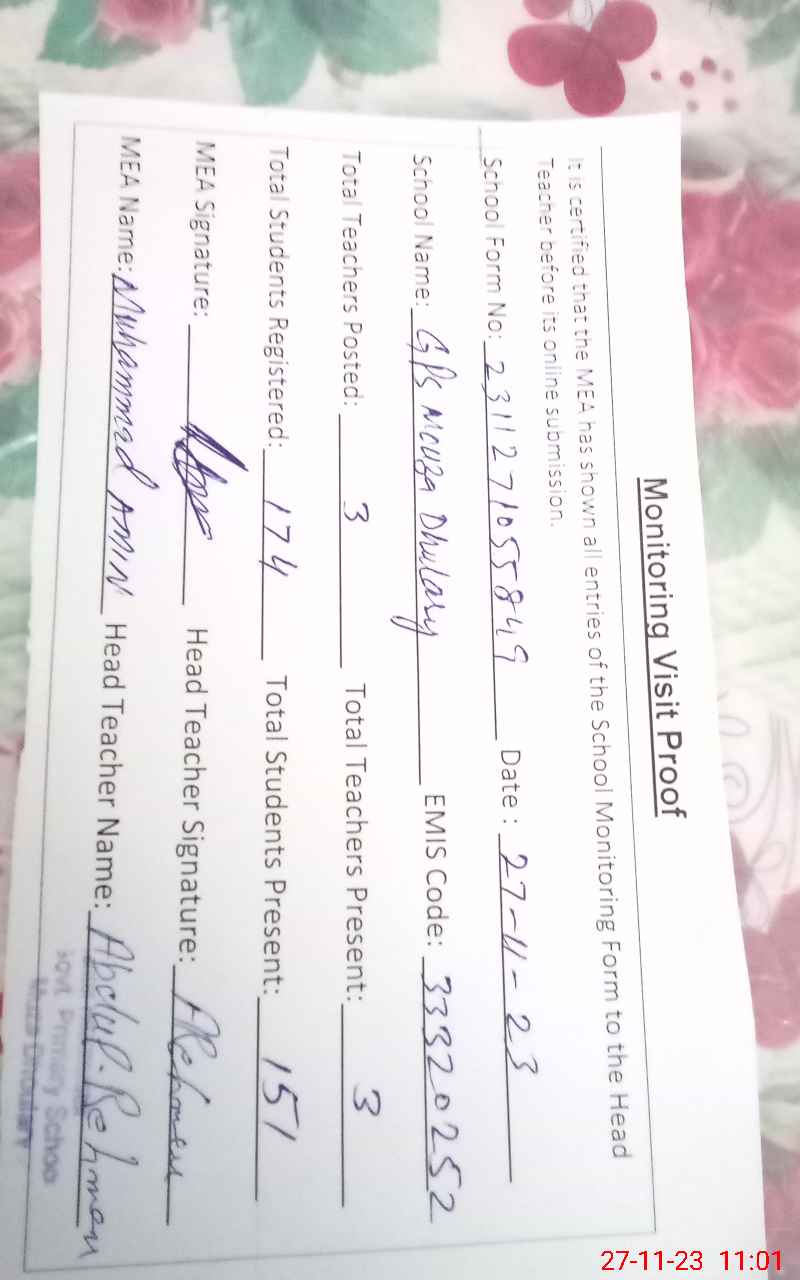 Monitoring Visit Proof
It is certified that the MEA has shown all entries of the School Monitoring Form to the Head
Teacher before its online submission.
School Form No: 231127105849 Date : 27-11-23
School Name: GPS Mouza Dhulary EMIS Code: 33320252
Total Teachers Posted: 3 Total Teachers Present: 3
Total Students Registered: 174 Total Students Present: 151
MEA Signature: Head Teacher Signature: ARehman
MEA Name: Muhammad AMIN Head Teacher Name: Abdul.Rehman
Govt. Primary School
27-11-23 11:01